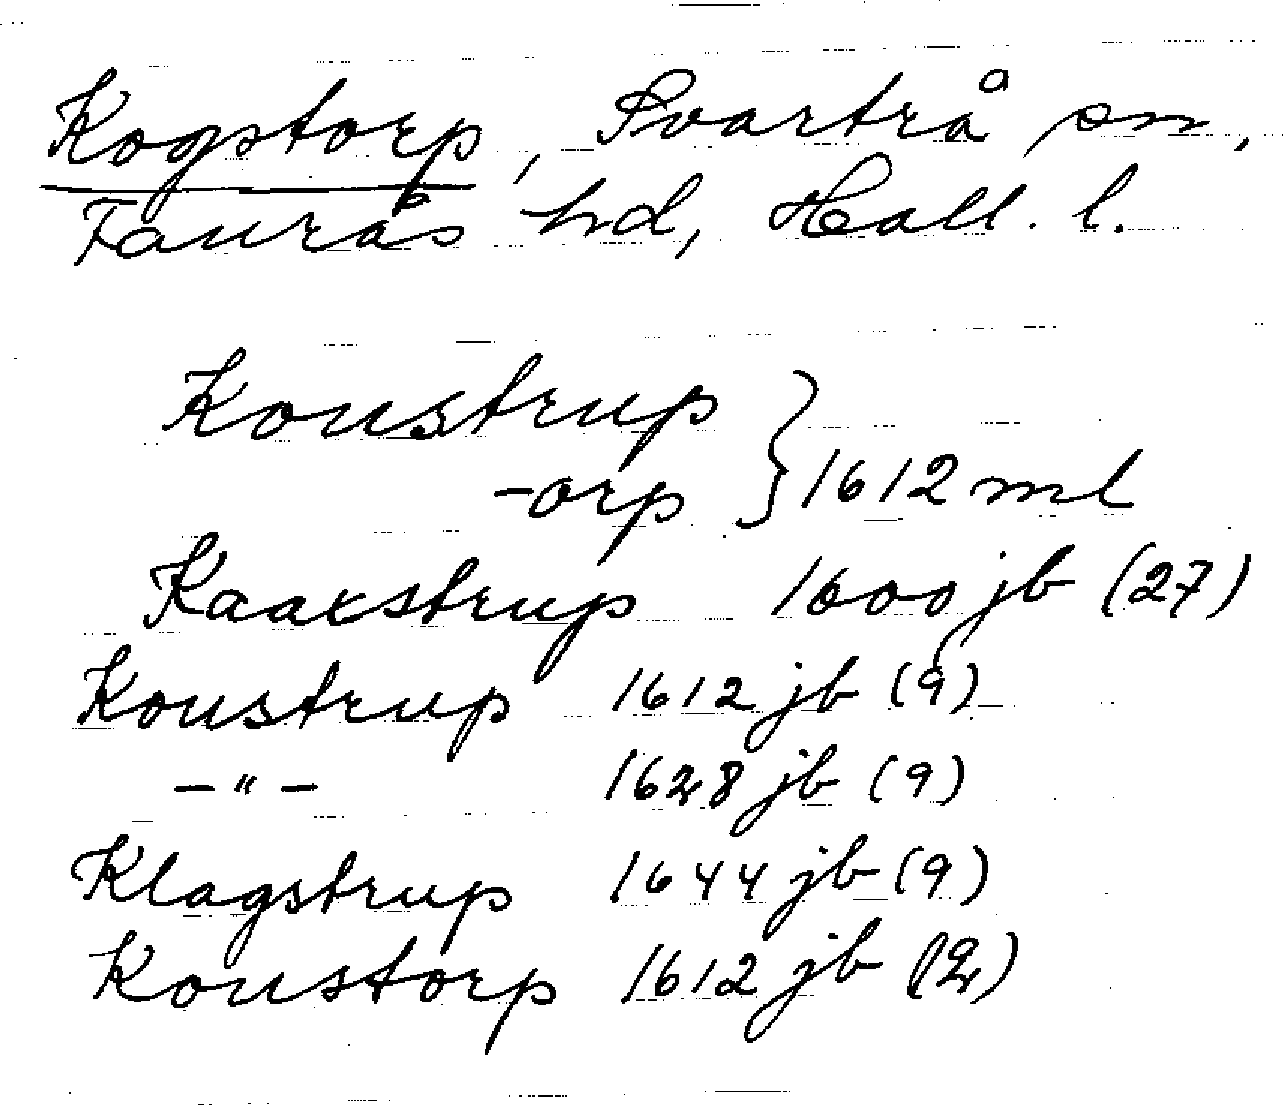 Kogstorp, Svartrå sn,
Faurås hd, Hall. l.
Koustrup
-orp } 1612 ml
Kaaxstrup 1600 jb (27)
Koustrup 1612 jb (9)
—"— 1628 jb (9)
Klagstrup 1644 jb (9)
Koustorp 1612 jb (2)